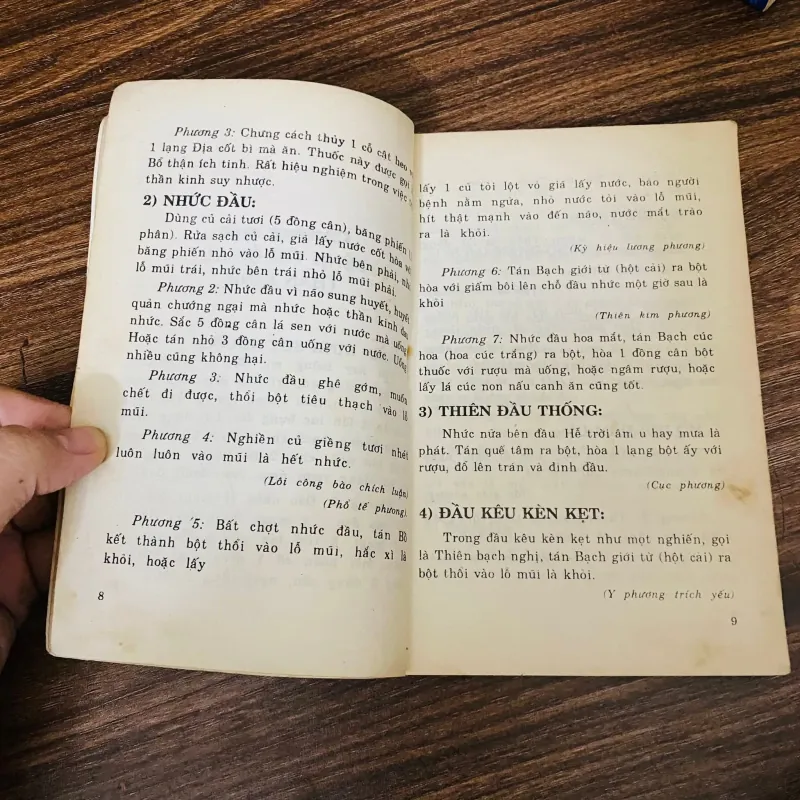 Phương 3: Chưng cách thủy 1 cỗ cật heo
1 lạng Địa cốt bì mà ăn. Thuốc này được gọi
Bổ thận ích tinh. Rất hiệu nghiệm trong việc
thần kinh suy nhược.
2) NHỨC ĐẦU:
Dùng củ cải tươi (5 đồng cân), băng phiến
phân). Rửa sạch củ cải, giá lấy nước cốt hòa với
băng phiến nhỏ vào lỗ mũi. Nhức bên phải, nhỏ
lỗ mũi trái, nhức bên trái nhỏ lỗ mũi phải.
Phương 2: Nhức đầu vì não sung huyết, huyết
quản chướng ngại mà nhức hoặc thần kinh đau
nhức. Sắc 5 đồng cân lá sen với nước mà uống
Hoặc tán nhỏ 3 đồng cân uống với nước. Uống
nhiều cũng không hại.
Phương 3: Nhức đầu ghê gớm, muốn
chết đi được, thổi bột tiêu thạch vào lỗ
mũi.
Phương 4: Nghiền củ giềng tươi nhét
luôn luôn vào mũi là hết nhức.
(Lôi công bào chích luận)
(Phổ tế phương).
Phương 5: Bất chợt nhức đầu, tán Bồ
kết thành bột thổi vào lỗ mũi, hắc xì là
khỏi, hoặc lấy
8
lấy 1 củ tỏi lột vỏ giá lấy nước, bảo người
bệnh nằm ngửa, nhỏ nước tỏi vào lỗ mũi,
hít thật mạnh vào đến não, nước mắt trào
ra là khỏi.
(Kỳ hiệu lương phương)
Phương 6: Tán Bạch giới tử (hột cải) ra bột
hòa với giấm bôi lên chỗ đầu nhức một giờ sau là
khỏi
(Thiên kim phương)
Phương 7: Nhức đầu hoa mắt, tán Bạch cúc
hoa (hoa cúc trắng) ra bột, hòa 1 đồng cân bột
thuốc với rượu mà uống, hoặc ngâm rượu, hoặc
lấy lá cúc non nấu canh ăn cũng tốt.
3) THIÊN ĐẦU THỐNG:
Nhức nửa bên đầu Hễ trời âm u hay mưa là
phát. Tán quế tâm ra bột, hòa 1 lạng bột ấy với
rượu, đổ lên trán và đỉnh đầu.
(Cục phương)
4) ĐẦU KÊU KÈN KẸT:
Trong đầu kêu kèn kẹt như mọt nghiến, gọi
là Thiên bạch nghị, tán Bạch giới tử (hột cải) ra
bột thổi vào lỗ mũi là khỏi.
(Y phương trích yếu)
9